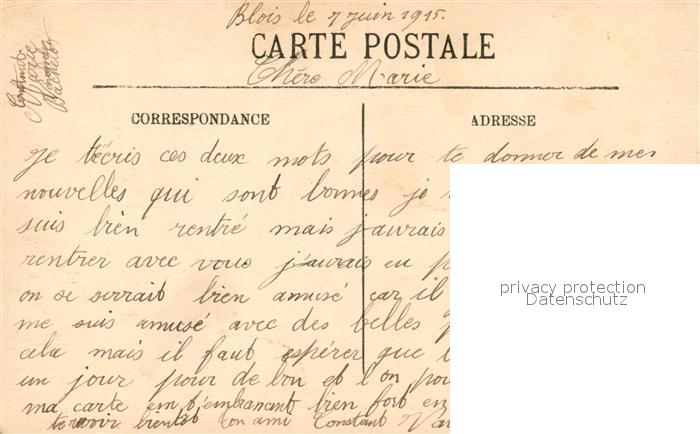 Blois le 7 juin 1915.
CARTE POSTALE
Chére Marie
CORRESPONDANCE
ADRESSE
je técris ces deux mots pour te donner de mes
nouvelles qui sont bonnes je
suis bien rentré mais j'aurais
rentrer avec vous j'aurais eu
on se serrait bien amusé car il
me suis amusé avec des belles
cela mais il faut espérer que
un jour pour de bon et l'on
ma carte en t'embrassant bien fort en
te revoir bientot ton ami Constant
privacy protection
Datenschutz